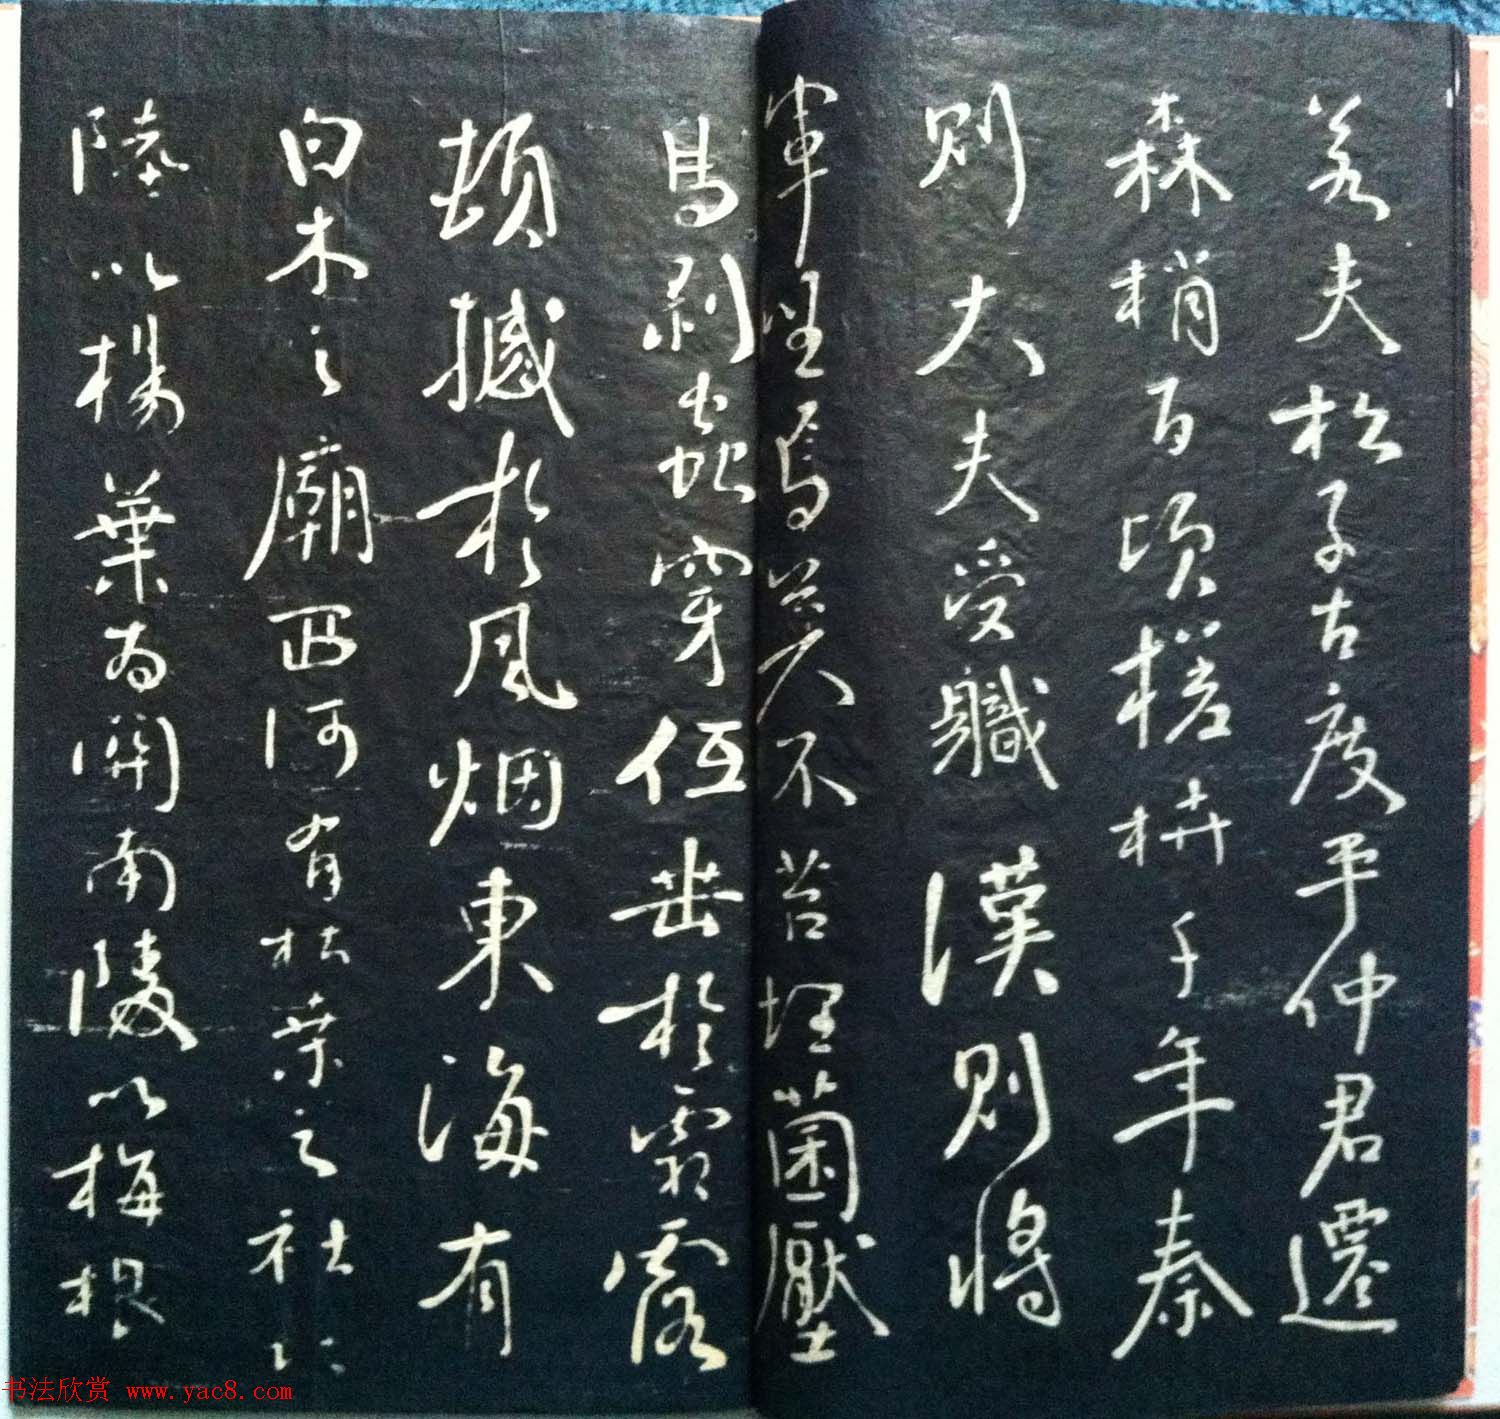 若夫松子古度平仲君遷
森梢百頃槎枿千年秦
則大夫受職漢則將
軍坐焉莫不苔埋菌壓
鳥剝蟲穿低垂於霜露
頓撼於風烟東海有
白木之廟西河有枯桑之社北
陸以楊葉為關南陵以梅根
书法欣赏 www.yac8.com